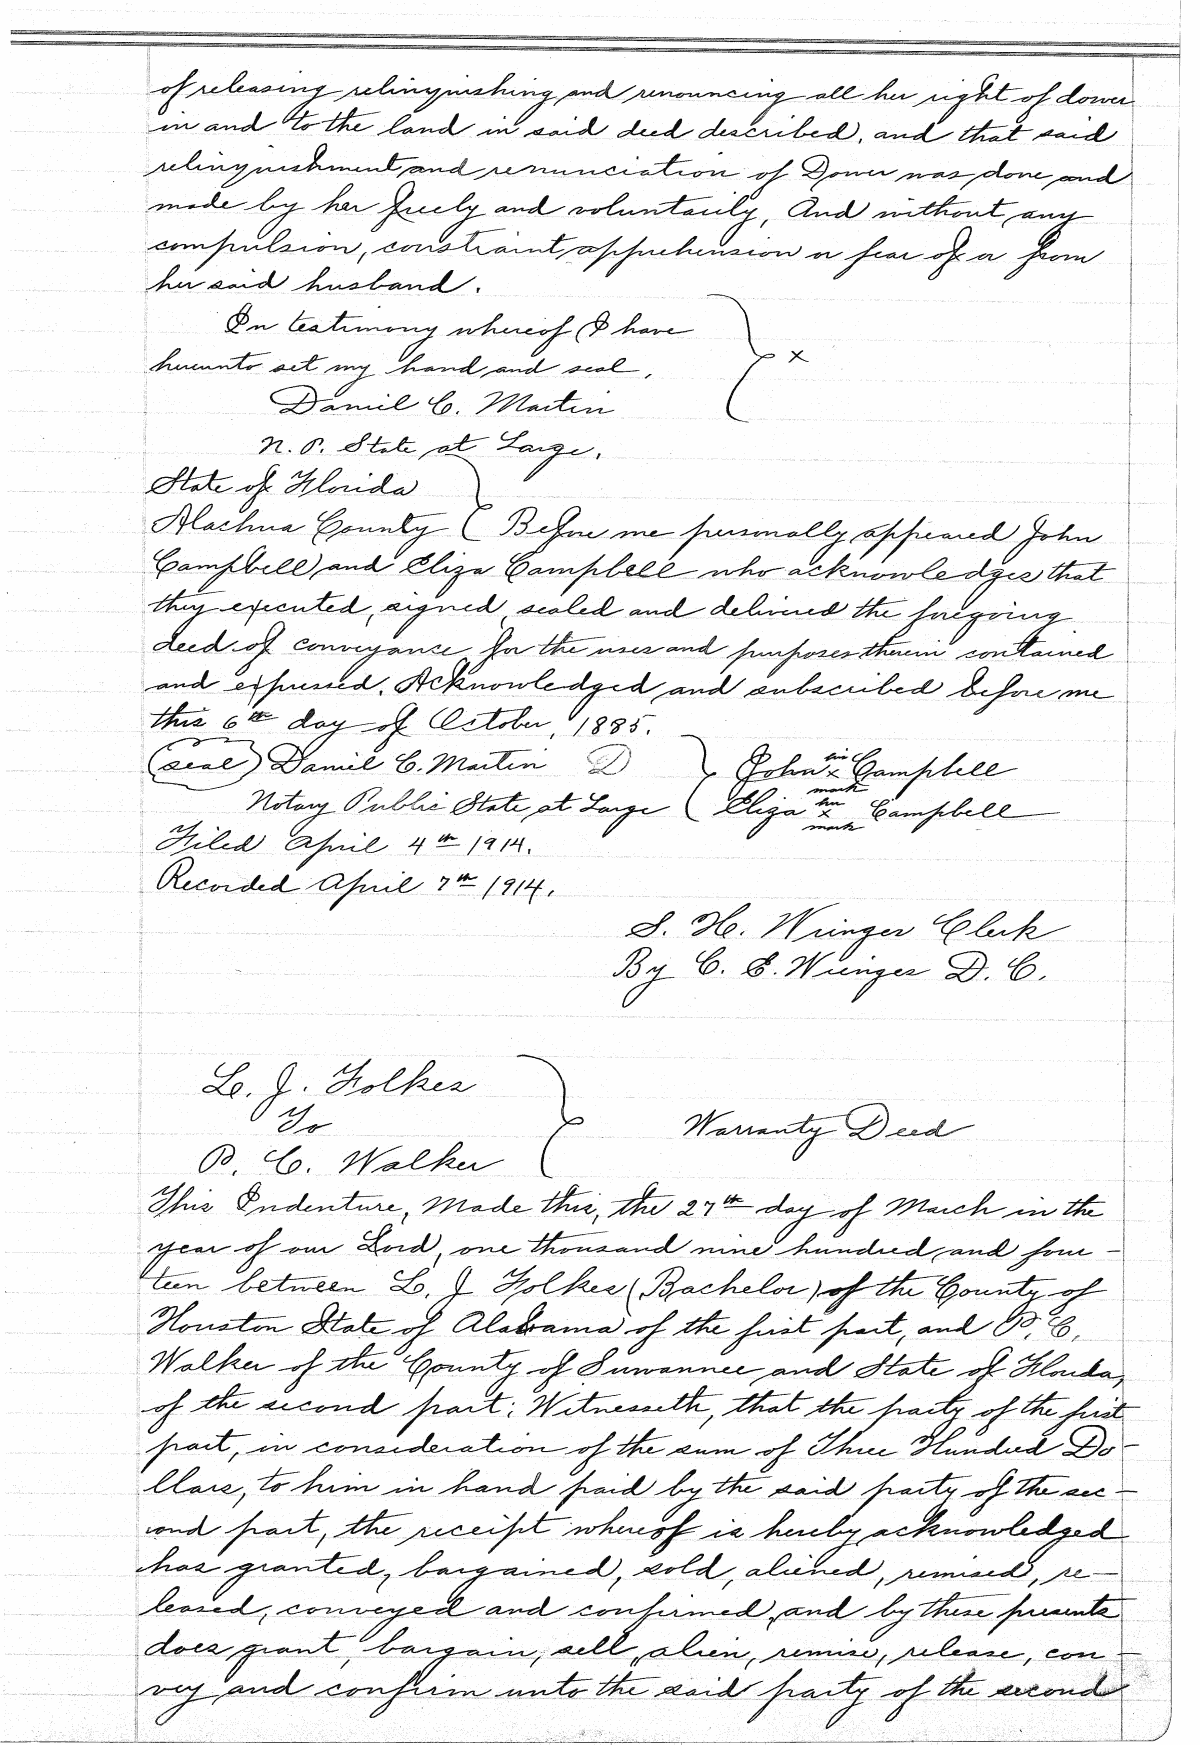 of releasing relinquishing and renouncing all her right of dower
in and to the land in said deed described, and that said
relinquishment and renunciation of Dower was done and
made by her freely and voluntarily, And without any
compulsion, constraint, apprehension or fear of or from
her said husband.
In testimony whereof I have
hereunto set my hand and seal, x
Daniel C. Martin
N. P. State at Large.
State of Florida
Alachua County Before me personally appeared John
Campbell and Eliza Campbell who acknowledges that
they executed, signed, sealed and delivered the foregoing
deed of conveyance for the uses and purposes therein contained
and expressed. Acknowledged and subscribed before me
this 6th day of October, 1885.
(seal) Daniel C. Martin D John his x mark Campbell
Notary Public State at Large Eliza her x mark Campbell
Filed April 4th 1914.
Recorded April 7th 1914.
S. H. Wienges Clerk
By C. E. Wienges D. C.
L. J. Folkes
To
P. C. Walker Warranty Deed
This Indenture, Made this, the 27th day of March in the
year of our Lord, one thousand nine hundred and four-
teen between L. J Folkes (Bachelor) of the County of
Houston State of Alabama of the first part, and P. C.
Walker of the County of Suwannee and State of Florida,
of the second part: Witnesseth, that the party of the first
part, in consideration of the sum of Three Hundred Do-
llars, to him in hand paid by the said party of the sec-
ond part, the receipt whereof is hereby acknowledged
has granted, bargained, sold, aliened, remised, re-
leased, conveyed and confirmed, and by these presents
does grant, bargain, sell, alien, remise, release, con-
vey and confirm unto the said party of the second